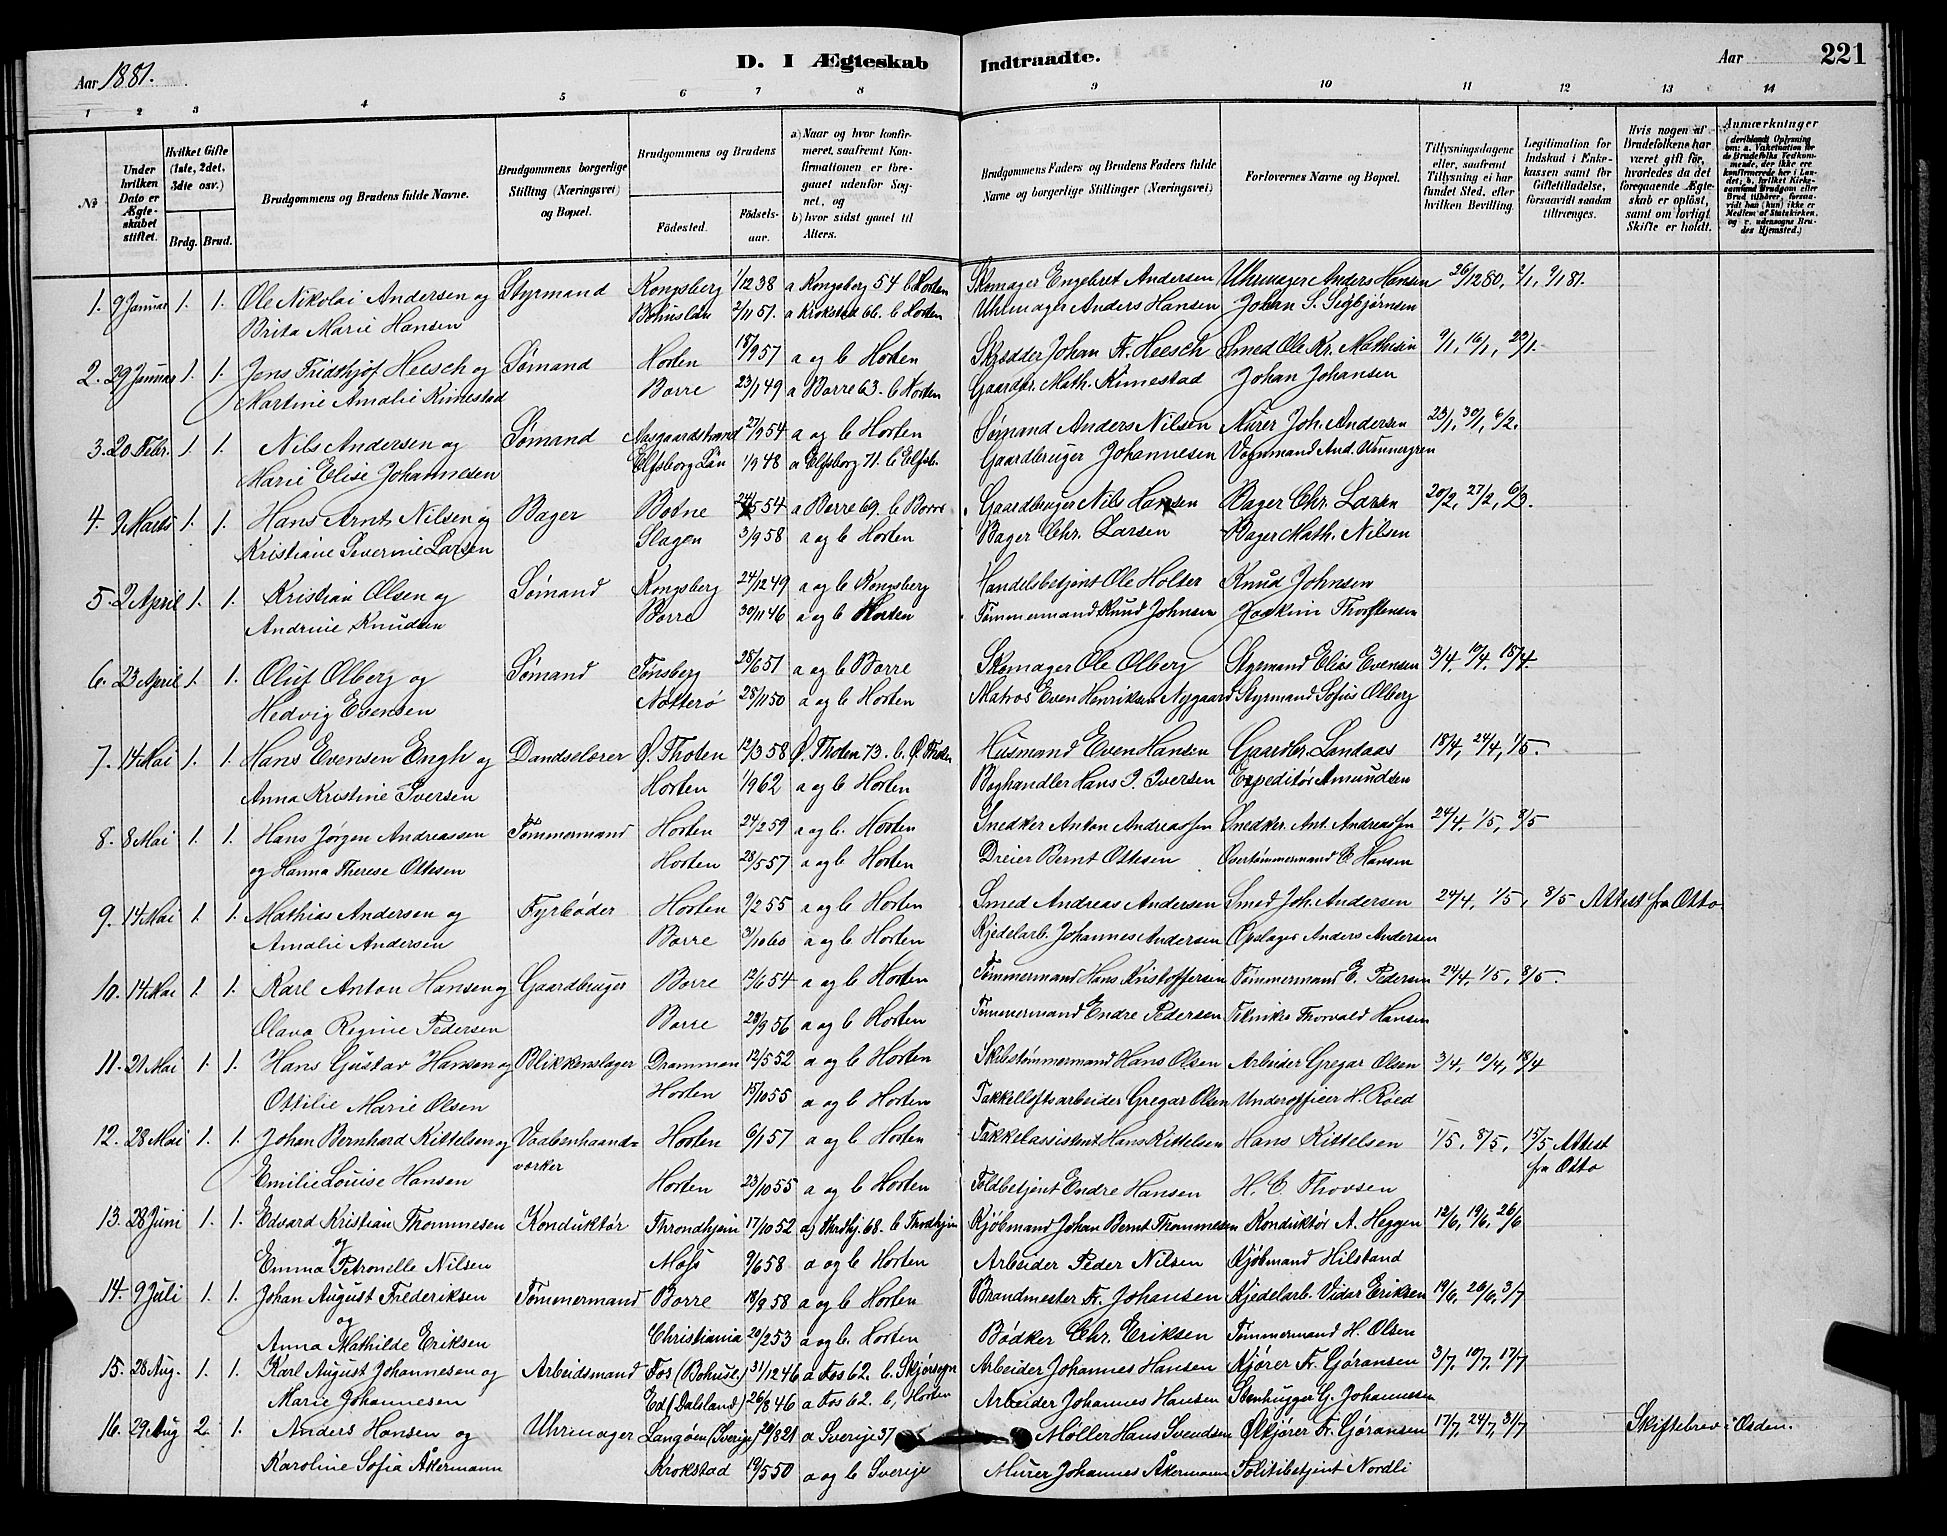 Aar 1881.
D. I Ægteskab Indtraadte.
Aar 221
1 2 3 4 5 6 7 8 9 10 11 12 13 14
No
Under hvilken Dato er Ægteskabet stiftet.
Hvilket Gifte (1ste, 2det, 3die osv.)
Brdg. Brud.
Brudgommens og Brudens fulde Navne.
Brudgommens borgerlige Stilling (Næringsvei) og Bopæl.
Brudgommens og Brudens
Födested. Födselsaar.
a) Naar og hvor konfirmeret, saafremt Konfirmationen er foregaaet udenfor Sognet, og
b) hvor sidst gaaet til Alters.
Brudgommens Faders og Brudens Faders fulde Navne og borgerlige Stillinger (Næringsvei)
Forlovernes Navne og Bopæl.
Tillysningsdagene eller, saafremt Tillysning ei har fundet Sted, efter hvilken Bevilling.
Legitimation for Indskud i Enkekassen samt for Giftetilladelse, forsaavidt saadan tiltrænges.
Hvis nogen af Brudefolkene har været gift för, hvorledes da det foregaaende Ægteskab er oplöst, samt om lovligt Skifte er holdt.
Anmærkninger
1. 9 Januar 1. 1. Ole Nikolai Andersen og Styrmand Kongsberg 1/12 38 a Kongsberg 54 b Horten Skomager Engebret Andersen Uhrmager Anders Hansen 26/12 80, 2/1, 9/1 81.
Brita Marie Hansen Bohuslän 2/11 51. a Krokstad 66. b Horten Uhrmager Anders Hansen Johan S. Sigbjørnsen
2. 29 Januar 1. 1. Jens Fridthjof Heesch og Sømand Horten 18/9 57 a og b Horten Skrædder Johan Fr. Heesch Smed Ole Kr. Mathisen 9/1, 16/1, 23/1.
Martine Amalie Kimestad Borre 23/1 49 a Borre 63. b Horten Gaardbr. Math. Kimestad Johan Johansen
3. 20 Febr. 1. 1. Nils Andersen og Sømand Aasgaardstrand 27/9 54 a og b Horten Sømand Anders Nilsen Murer Joh. Andersen 23/1, 30/1, 6/2.
Marie Elise Johannesen Elfsborg Län 1/9 48 a Elfsborg 71. b Elfsb. Gaardbruger Johannesen Vognmand And. Wennergren
4. 9 Marts 1. 1. Hans Arnt Nilsen og Bager Botne 24/5 54 a Borre 69. b Borre Gaardbruger Nils Hansen Bager Chr. Larsen 20/2, 27/2, 6/3.
Kristiane Severine Larsen Slagen 3/9 58 a og b Horten Bager Chr. Larsen Bager Math. Nilsen
5. 2 April 1. 1. Kristian Olsen og Sømand Kongsberg 24/12 49 a og b Kongsberg Handelsbetjent Ole Holter Knud Johnsen
Andrine Knudsen Borre 30/11 46 a og b Horten Tømmermand Knud Johnsen Joakim Thorstensen
6. 23 April 1. 1. Oluf Olberg og Sømand Tønsberg 28/6 51 a og b Borre Skomager Ole Olberg Styrmand Elias Evensen 3/4, 10/4, 18/4.
Hedvig Evensen Nøtterø 28/11 50 a og b Horten Matros Even Henriksen Nygaard Styrmand Sofus Olberg
7. 14 Mai 1. 1. Hans Evensen Engh og Dandselærer Ø. Thoten 12/3 58 Ø. Thoten 73. b. Ø. Thoten Husmand Even Hansen Gaardbr. Landaas 18/4, 24/4, 1/5.
Anna Kristine Iversen Horten 1/9 62 a og b Horten Boghandler Hans P. Iversen Expeditør Amundsen
8. 8 Mai 1. 1. Hans Jørgen Andreassen Tømmermand Horten 24/2 59 a og b. Horten Snedker Anton Andreassen Snedkr. Ant. Andreassen 24/4, 1/5, 8/5
og Hanna Therese Ottesen Horten 28/5 57 a og b Horten Dreier Bernt Ottesen Overtømmermand C. Hansen
9. 14 Mai 1. 1. Mathias Andersen og Fyrbøder Horten 9/2 55 a og b Horten Smed Andreas Andersen Smed Joh. Andersen 24/4, 1/5, 8/5 Attest fra Otto
Amalie Andersen Borre 3/10 60 a og b Horten Kjedelarb. Johannes Andersen Opslager Anders Andersen
10. 14 Mai 1. 1. Karl Anton Hansen og Gaardbruger Borre 12/6 54 a og b Horten Tømmermand Hans Kristoffersen Tømmermand E. Pedersen 24/4, 1/5, 8/5.
Olava Regine Pedersen Borre 28/9 56 a og b Horten Tømmermand Endre Pedersen Tekniker Thorvald Hansen
11. 21 Mai 1. 1. Hans Gustav Hansen og Blikkenslager Drammen 12/5 52 a og b Horten Skibstømmermand Hans Olsen Arbeider Gregar Olsen 3/4, 10/4, 18/4
Ottilie Marie Olsen Horten 15/10 55 a og b Horten Takkelloftsarbeider Gregar Olsen Underofficer H. Røed
12. 28 Mai 1. 1. Johan Bernhard Kittelsen og Vaabenhaandværker Horten 6/1 57 a og b Horten Takkelassistent Hans Kittelsen Hans Kittelsen 1/5, 8/5, 15/5 Attest fra Otto
Emilie Louise Hansen Horten 23/10 55 a og b Horten Toldbetjent Endre Hansen H. C. Thovsen
13. 28 Juni 1. 1. Edvard Kristian Thommesen Konduktør Throndhjem 17/10 52 a) Thrdhj. 68. b Throdhjem Kjøbmand Johan Bernt Thommesen Konduktør A. Heggen 12/6, 19/6, 26/6
og Emma Petronelle Nilsen Moss 9/6 58 a og b Horten Arbeider Peder Nilsen Kjøbmand Hilstand
14. 9 Juli 1. 1. Johan August Frederiksen Tømmermand Borre 18/9 58 a og b Horten Brandmester Fr. Johansen Kjedelarb. Vidar Eriksen 19/6, 26/6, 3/7
og Anna Mathilde Eriksen Christiania 20/2 53 a og b. Horten Bødker Chr. Eriksen Tømmermand H. Olsen
15. 28 Aug. 1. 1. Karl August Johannesen og Arbeidsmand Fos (Bohusl.) 31/12 46 a Fos 62. b. Skjørsogn Arbeider Johannes Hansen Kjører Fr. Gøransen 3/7, 10/7, 17/7
Marie Johannesen Ed (Dalsland) 26/8 46 a Fos 62. b, Horten Arbeider Johannes Hansen Stenhugger G. Johannesen
16. 29 Aug 2. 1. Anders Hansen og Uhrmager Langøen (Sverige) 20/8 21 a Sverige 37 Møller Hans Svendsen Kjører Fr. Gøransen 17/7, 24/7, 31/7 Skiftebrev i Orden.
Karoline Sofia Åkermann Krokstad 19/5 50 a og b Sverige Murer Johannes Åkermann Politibetjent Nordli